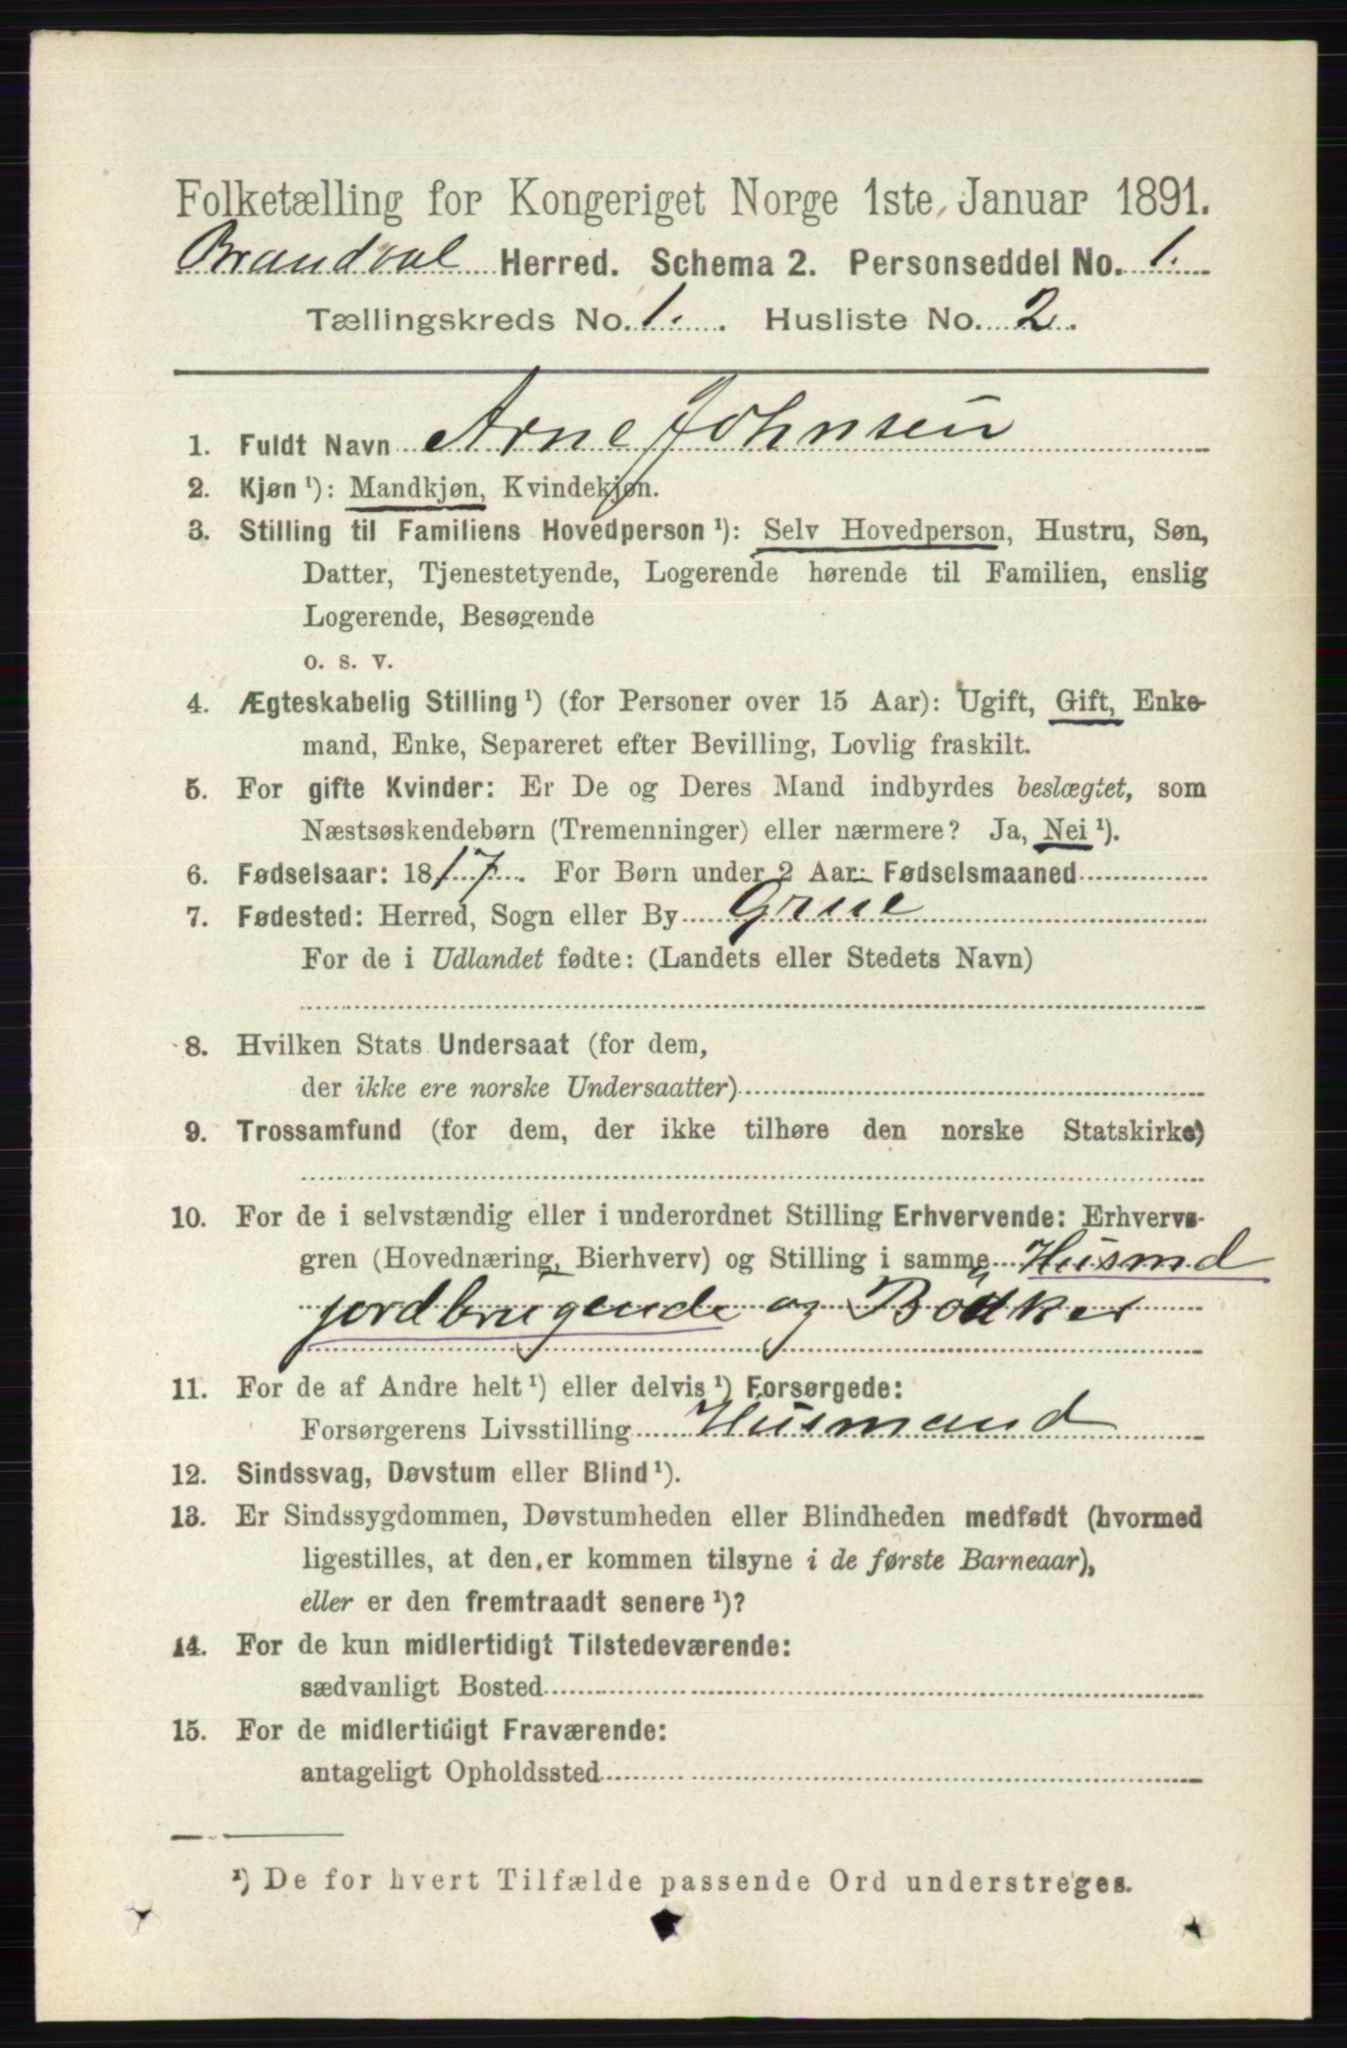 Folketælling for Kongeriget Norge 1ste Januar 1891.
Brandval Herred. Schema 2. Personseddel No. 1.
Tællingskreds No. 1. Husliste No. 2.
1. Fuldt Navn Arne Johnsen
2. Kjøn ¹): Mandkjøn, Kvindekjøn.
3. Stilling til Familiens Hovedperson ¹): Selv Hovedperson, Hustru, Søn,
Datter, Tjenestetyende, Logerende hørende til Familien, enslig
Logerende, Besøgende
o. s. v.
4. Ægteskabelig Stilling ¹) (for Personer over 15 Aar): Ugift, Gift, Enke-
mand, Enke, Separeret efter Bevilling, Lovlig fraskilt.
5. For gifte Kvinder: Er De og Deres Mand indbyrdes beslægtet, som
Næstsøskendebørn (Tremenninger) eller nærmere? Ja, Nei ¹).
6. Fødselsaar: 1817. For Børn under 2 Aar: Fødselsmaaned
7. Fødested: Herred, Sogn eller By Grue
For de i Udlandet fødte: (Landets eller Stedets Navn)
8. Hvilken Stats Undersaat (for dem,
der ikke ere norske Undersaatter)
9. Trossamfund (for dem, der ikke tilhøre den norske Statskirke)
10. For de i selvstændig eller i underordnet Stilling Erhvervende: Erhvervs-
gren (Hovednæring, Bierhverv) og Stilling i samme Husmd
jordbrugende og Bödker
11. For de af Andre helt ¹) eller delvis ¹) Forsørgede:
Forsørgerens Livsstilling Husmand
12. Sindssvag, Døvstum eller Blind ¹).
13. Er Sindssygdommen, Døvstumheden eller Blindheden medfødt (hvormed
ligestilles, at den er kommen tilsyne i de første Barneaar),
eller er den fremtraadt senere ¹)?
14. For de kun midlertidigt Tilstedeværende:
sædvanligt Bosted
15. For de midlertidigt Fraværende:
antageligt Opholdssted
¹) De for hvert Tilfælde passende Ord understreges.